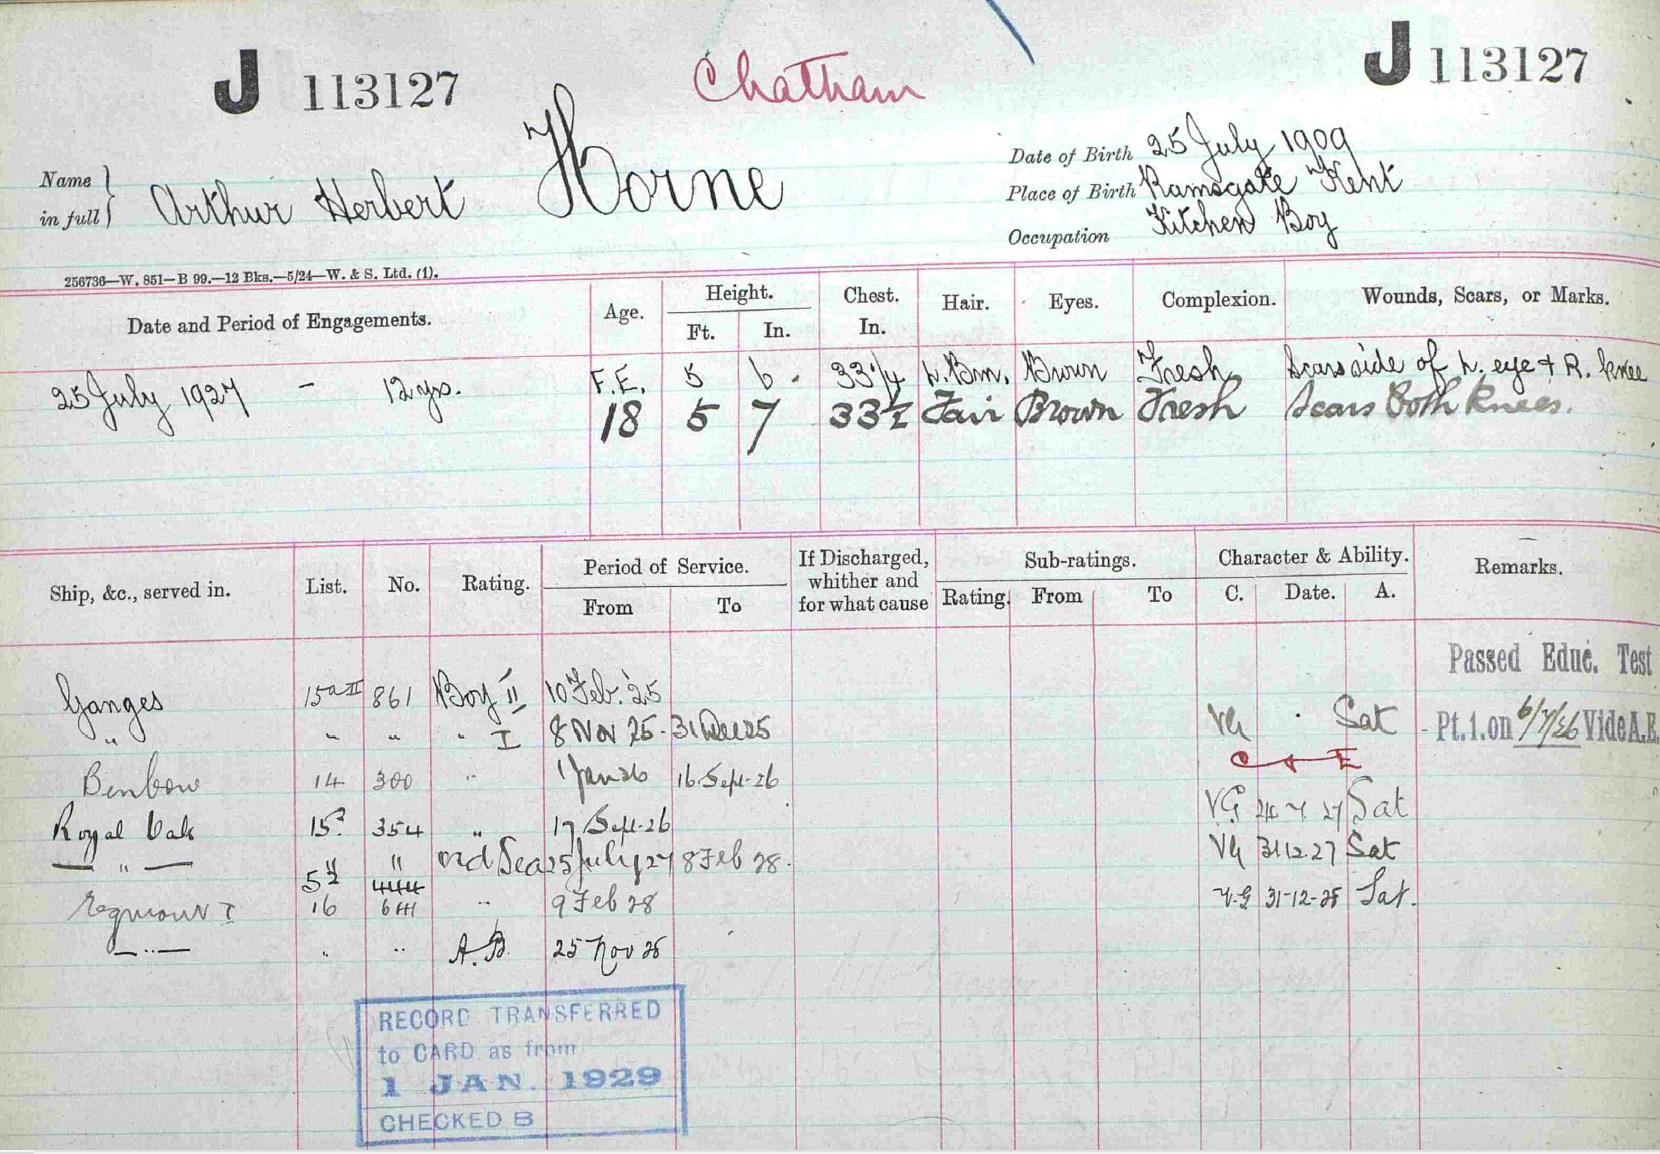 J 113127
Chatham
J 113127
Name in full } Arthur Herbert Horne
Date of Birth 25 July 1909
Place of Birth Ramsgate Kent
Occupation Kitchen Boy
256736—W. 851—B 99.—12 Bks.—5/24—W. & S. Ltd. (1).
Date and Period of Engagements. Age. Height. Ft. In. Chest. In. Hair. Eyes. Complexion. Wounds, Scars, or Marks.
25 July 1927 - 12 yrs. F.E. 5 6. 33¼ L. Brn. Brown Fresh Scars side of L. eye & R. knee
18 5 7 33½ Fair Brown Fresh Scars Both Knees.
Ship, &c., served in. List. No. Rating. Period of Service. From To If Discharged, whither and for what cause Sub-ratings. Rating. From To Character & Ability. C. Date. A. Remarks.
Passed Educ. Test
Ganges 15a II 861 Boy II 10 Feb. '25
" " " " I 8 Nov 25 - 31 Dec 25 VG Sat Pt. 1. on 6/7/26 Vide A.E.
C & E
Benbow 14 300 " 1 Jan 26 16 Sept-26
Royal Oak 15a 354 " 17 Sept-26 VG 24 7 27 Sat
— " — 5 " ord Sea 25 July 27 8 Feb 28. VG 31 12 27 Sat
444
Egmont I 16 " 9 Feb 28 V.G 31-12-28 Sat.
— " — " " A.B. 25 Nov 28
RECORD TRANSFERRED
to CARD as from
1 JAN. 1929
CHECKED B